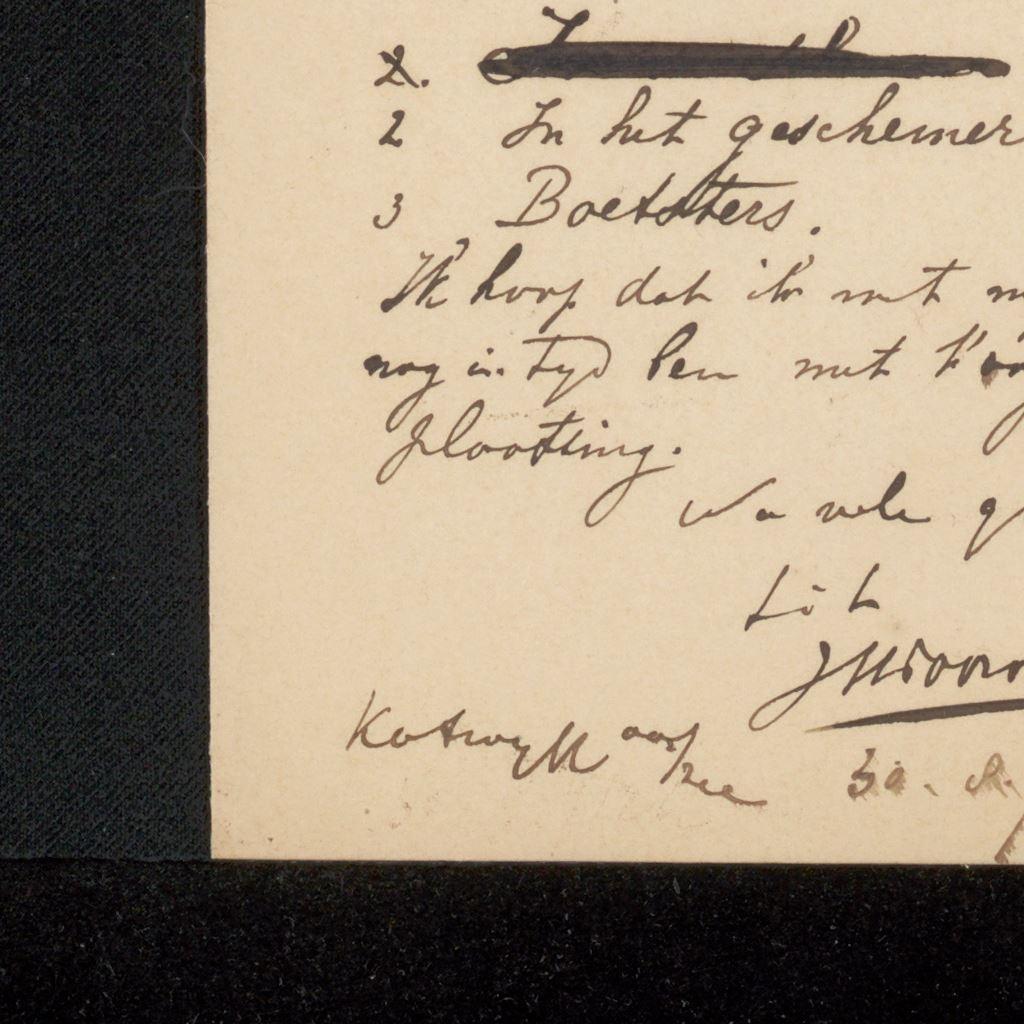 2.
2 In het geschemer
3 Boetsters.
Ik hoop dat ik met
nog in tyd ben met
plaatsing.
Na vele
tot
Katwyk aan/zee 30. 8.